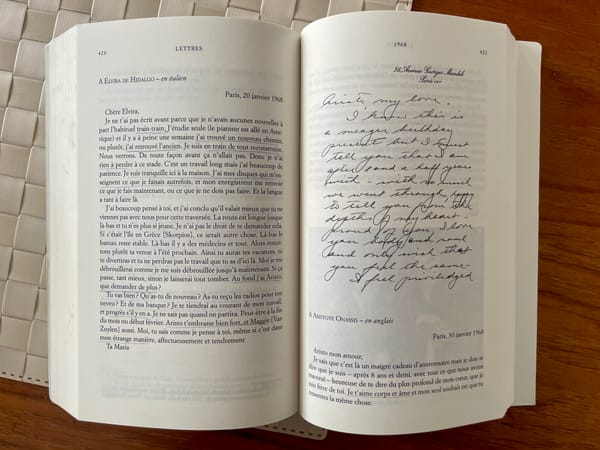 426
LETTRES
A ELVIRA DE HIDALGO – en italien
Paris, 20 janvier 1968
Chère Elvira,
Je ne t'ai pas écrit avant parce que je n'avais aucunes nouvelles à
part l'habituel train-train. J'étudie seule (le pianiste est allé en Amé-
rique) et il y a à peine une semaine j'ai trouvé un nouveau chemin,
ou plutôt, j'ai retrouvé l'ancien. Je suis en train de tout reconstruire.
Nous verrons. De toute façon avant ça n'allait pas. Donc je n'ai
rien à perdre à ce stade. C'est un travail long mais j'ai beaucoup de
patience. Je suis tranquille ici à la maison. J'ai mes disques qui m'en-
seignent ce que je faisais autrefois, et mon enregistreur me renvoie
ce que je fais maintenant, ou ce que je ne dois pas faire. Et la langue
a tant à faire là.
J'ai beaucoup pensé à toi, et j'ai conclu qu'il valait mieux que tu ne
viennes pas avec nous pour cette traversée. La route est longue jusque
là-bas et tu n'es plus si jeune. Je n'ai pas le droit de te demander cela.
Si c'était l'île en Grèce [Skorpios], ce serait autre chose. Là-bas le
bateau reste stable. Là-bas il y a des médecins et tout. Alors remet-
tons plutôt ta venue à l'été prochain. Ainsi tu auras tes vacances, tu
te divertiras et tu ne perdras pas le travail que tu as d'ici là. Moi je me
débrouillerai comme je me suis débrouillée jusqu'à maintenant. Si ça
passe, tant mieux, sinon je laisserai tout tomber. Au fond j'ai Aristo,
que demander de plus ?
Tu vas bien ? Qu'as-tu de nouveau ? As-tu reçu les radios pour ton
neveu ? Et de ma banque ? Je te tiendrai au courant de mon travail,
et progrès s'il y en a. Je ne sais pas quand on partira. Peut-être à la fin
du mois ou début février. Aristo t'embrasse bien fort, et Maggie [Van
Zuylen] aussi. Moi, tu sais comme je pense à toi, même si c'est dans
mon étrange manière, affectueusement et tendrement
Ta Maria
1968
427
36 Avenue Georges Mandel
Paris
Aristo, my love -
I know this is
a meager birthday
present but I must
tell you that I am
after 8 and a half years
with so much
we went through, happy
to tell you from the
depth of my heart -
proud of you, I love
you body and soul
and only wish that
you feel the same -
I feel priviledged
A ARISTOTE ONASSIS – en anglais
Paris, 30 janvier 1968
Aristo mon amour,
Je sais que c'est là un maigre cadeau d'anniversaire mais je dois te
dire que je suis – après 8 ans et demi, avec tout ce que nous avons
traversé – heureuse de te dire du plus profond de mon cœur, que je
suis fière de toi. Je t'aime corps et âme et mon seul souhait est que tu
ressentes la même chose.